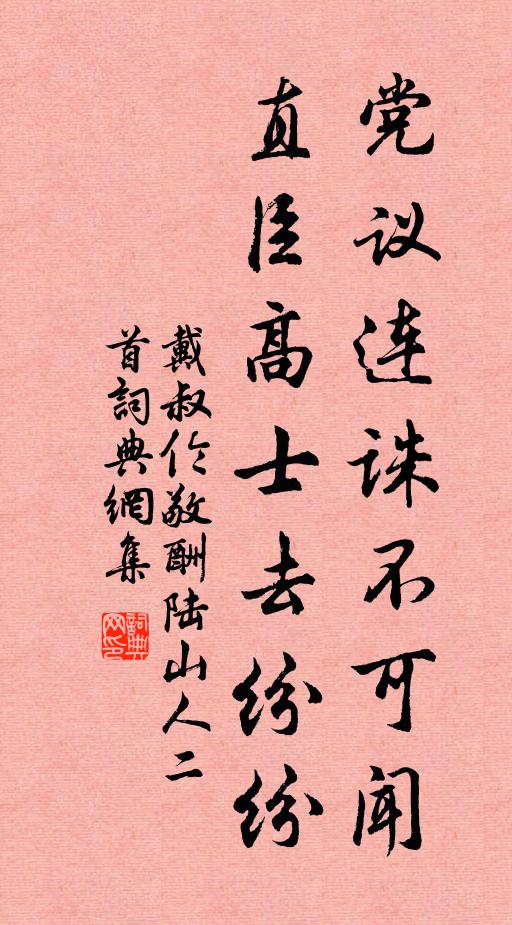 党议连诛不可闻
直臣高士去纷纷
戴叔伦敬酬陆山人二
首詞典網集
詞典
网印